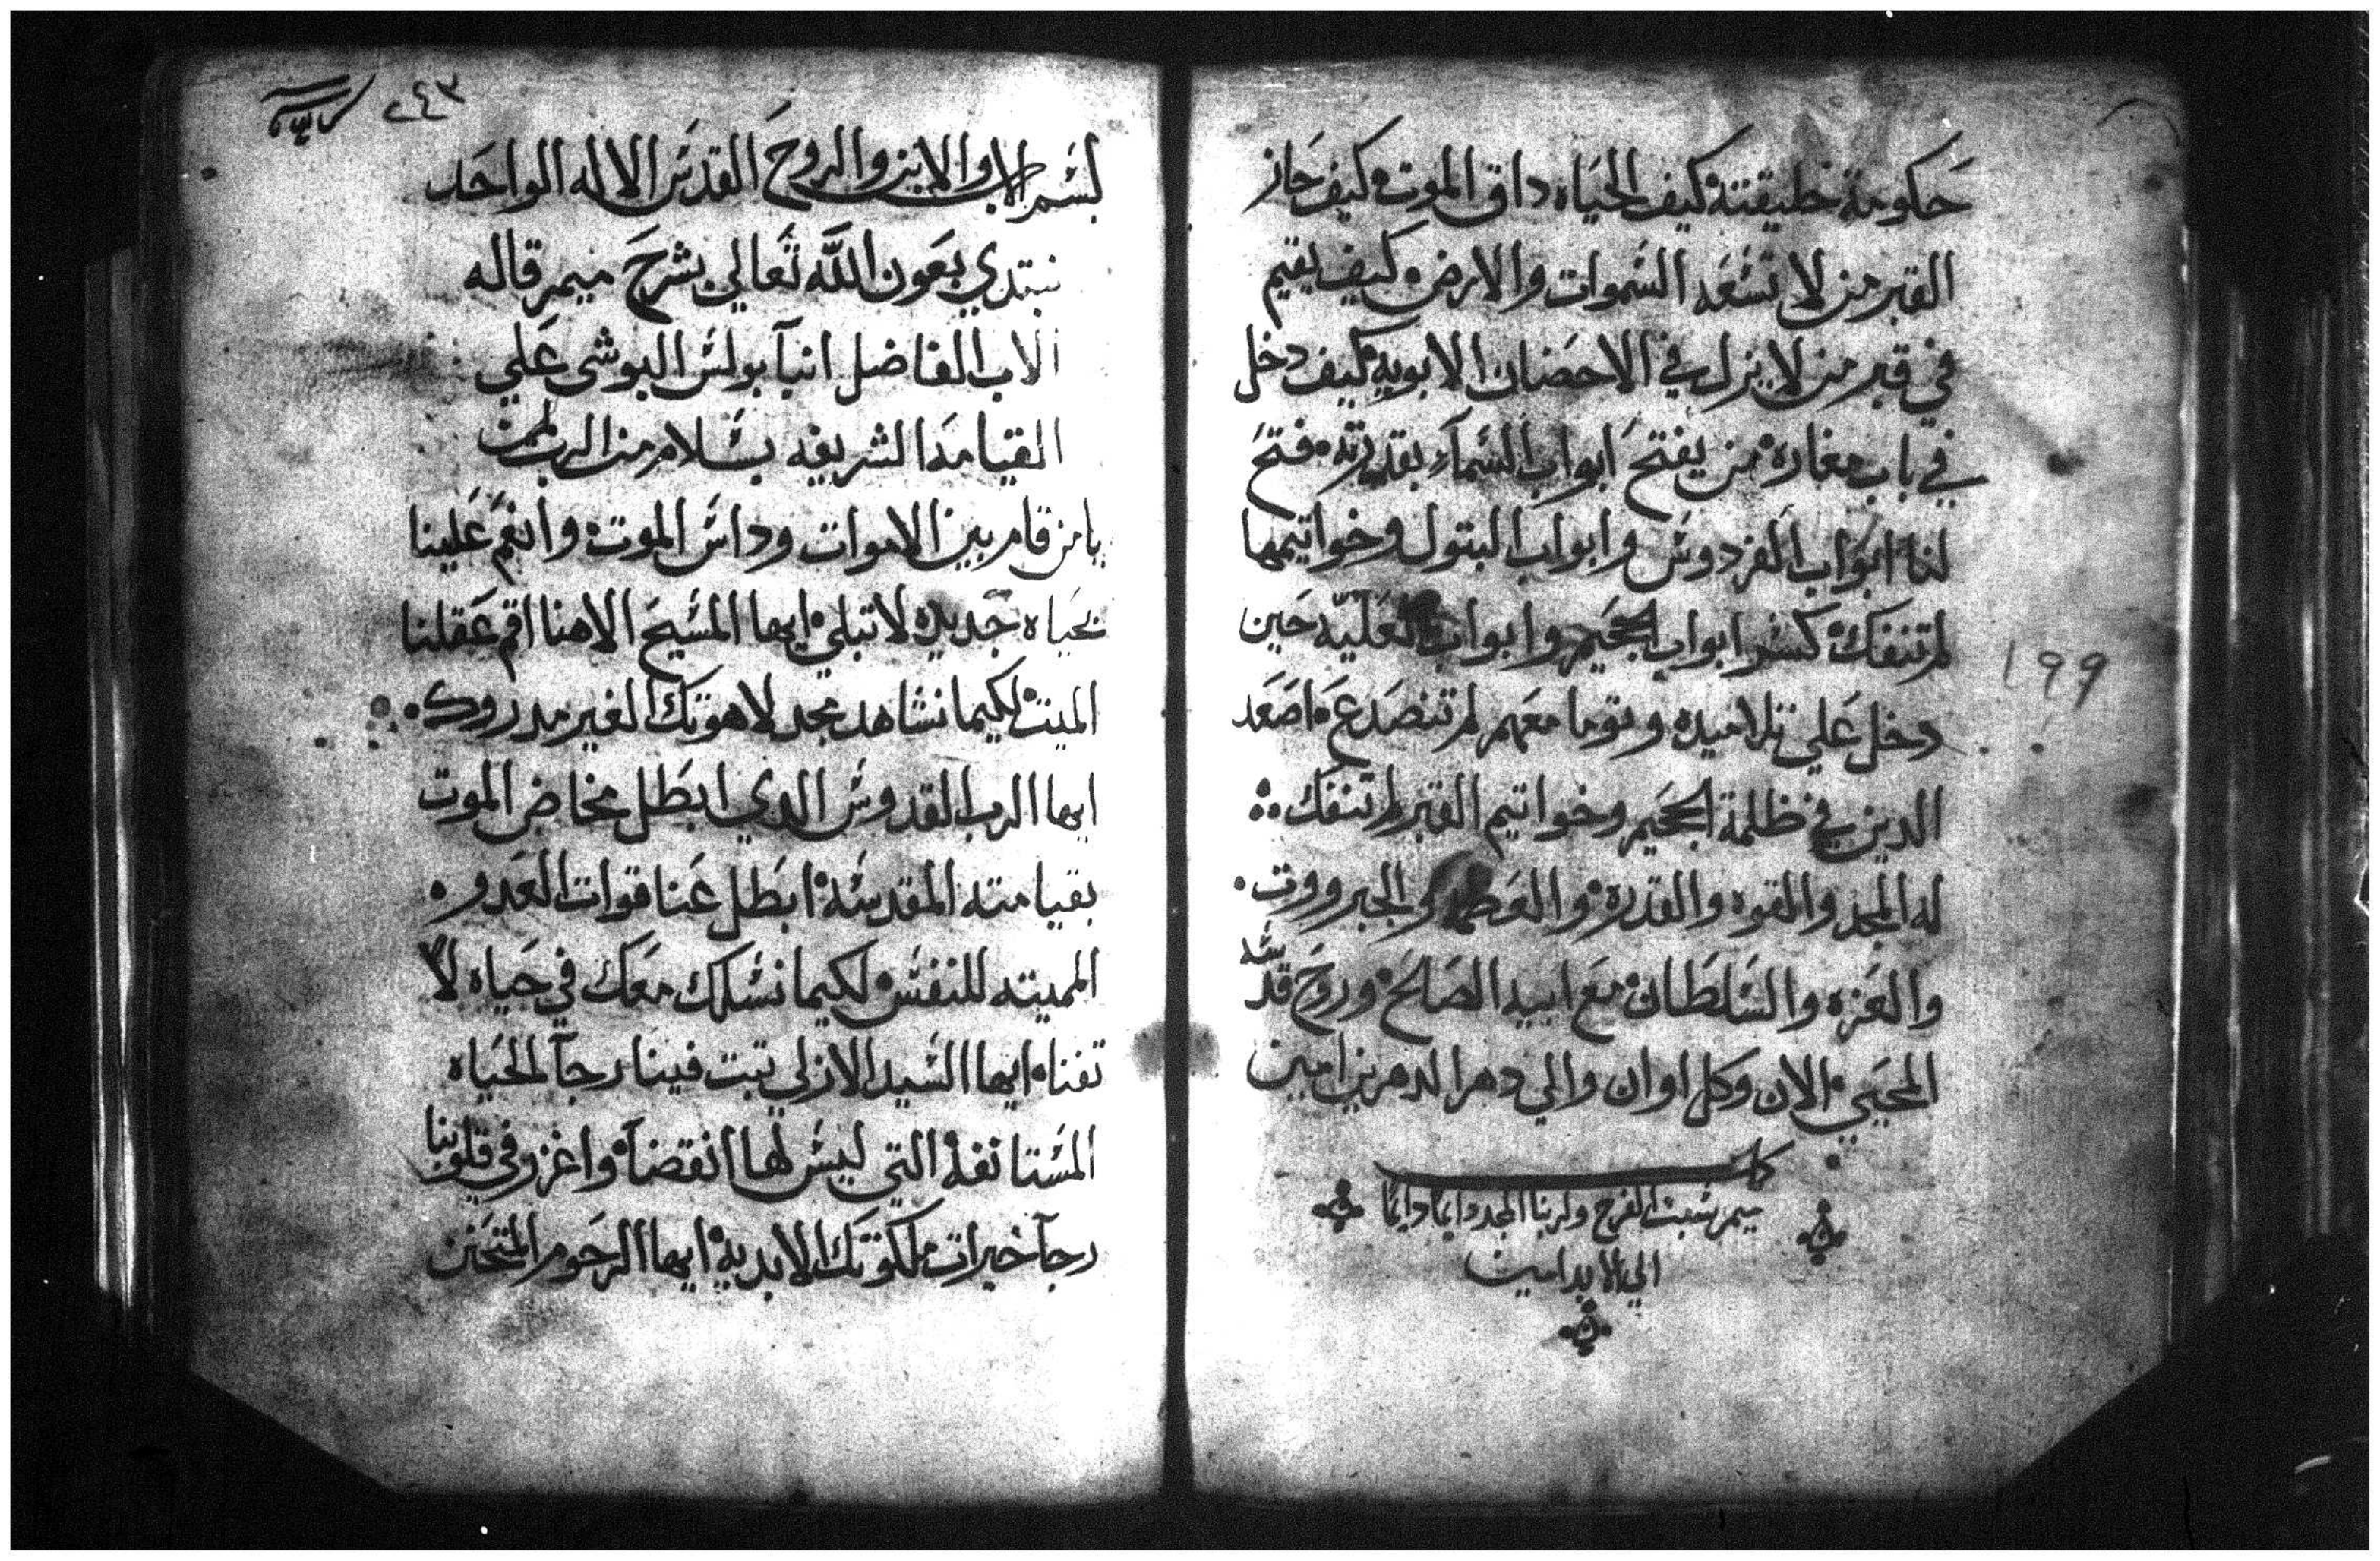 حكومة خليقته كيف الحياه داق الموت كيف حاز
القبر من لا تسعه السموات والارض كيف يقيم
في قبر من لا يزل في الاحضان الابويه كيف دخل
في باب مغاره من يفتح ابواب السمآء بقدرته فتح
لنا ابواب الفردوس وابواب البتول وخواتيمها
لم تنفك كسر ابواب الجحيم وابواب العليّه حين
دخل علي تلاميده وتوما معهم لم تنصدع اصعد
الدين في ظلمة الجحيم وخواتيم القبر لم تنفك
له المجد والقوه والقدره والعظمه والجبرووت
والعزه والسلطان مع ابيه الصالح وروح قدسه
المحيي الان وكل اوان والي دهر الدهرين امين
كمل
ميمر سبت الفرح ولربنا المجد دايما دايما
الي الابد امين
199
٢٤٣
بسم الاب والابن والروح القدس الاله الواحد
نبتدي بعون اللّه تعالي بشرح ميمر قاله
الاب الفاضل انبآ بولس البوشي علي
القيامه الشريفه بسلام من الرب امين
يا من قام بين الاموات وداس الموت وانعم علينا
بحياه جديده لا تبلي ايها المسيح الاهنا اقم عقلنا
الميت لكيما نشاهد مجد لاهوتك الغير مدروك
ايها الرب القدوس الدي ابطل مخاض الموت
بقيامته المقدسه ابطل عنا قوات العدو
المميته للنفس لكيما نسلك معك في حياه لا
تفناه ايها السيد الازلي تبت فينا رجآ الحياه
المستانفه التي ليس لها انقضآ واغزر في قلوبنا
رجآ خيرات ملكوتك الابديه ايها الرحوم المتحنن